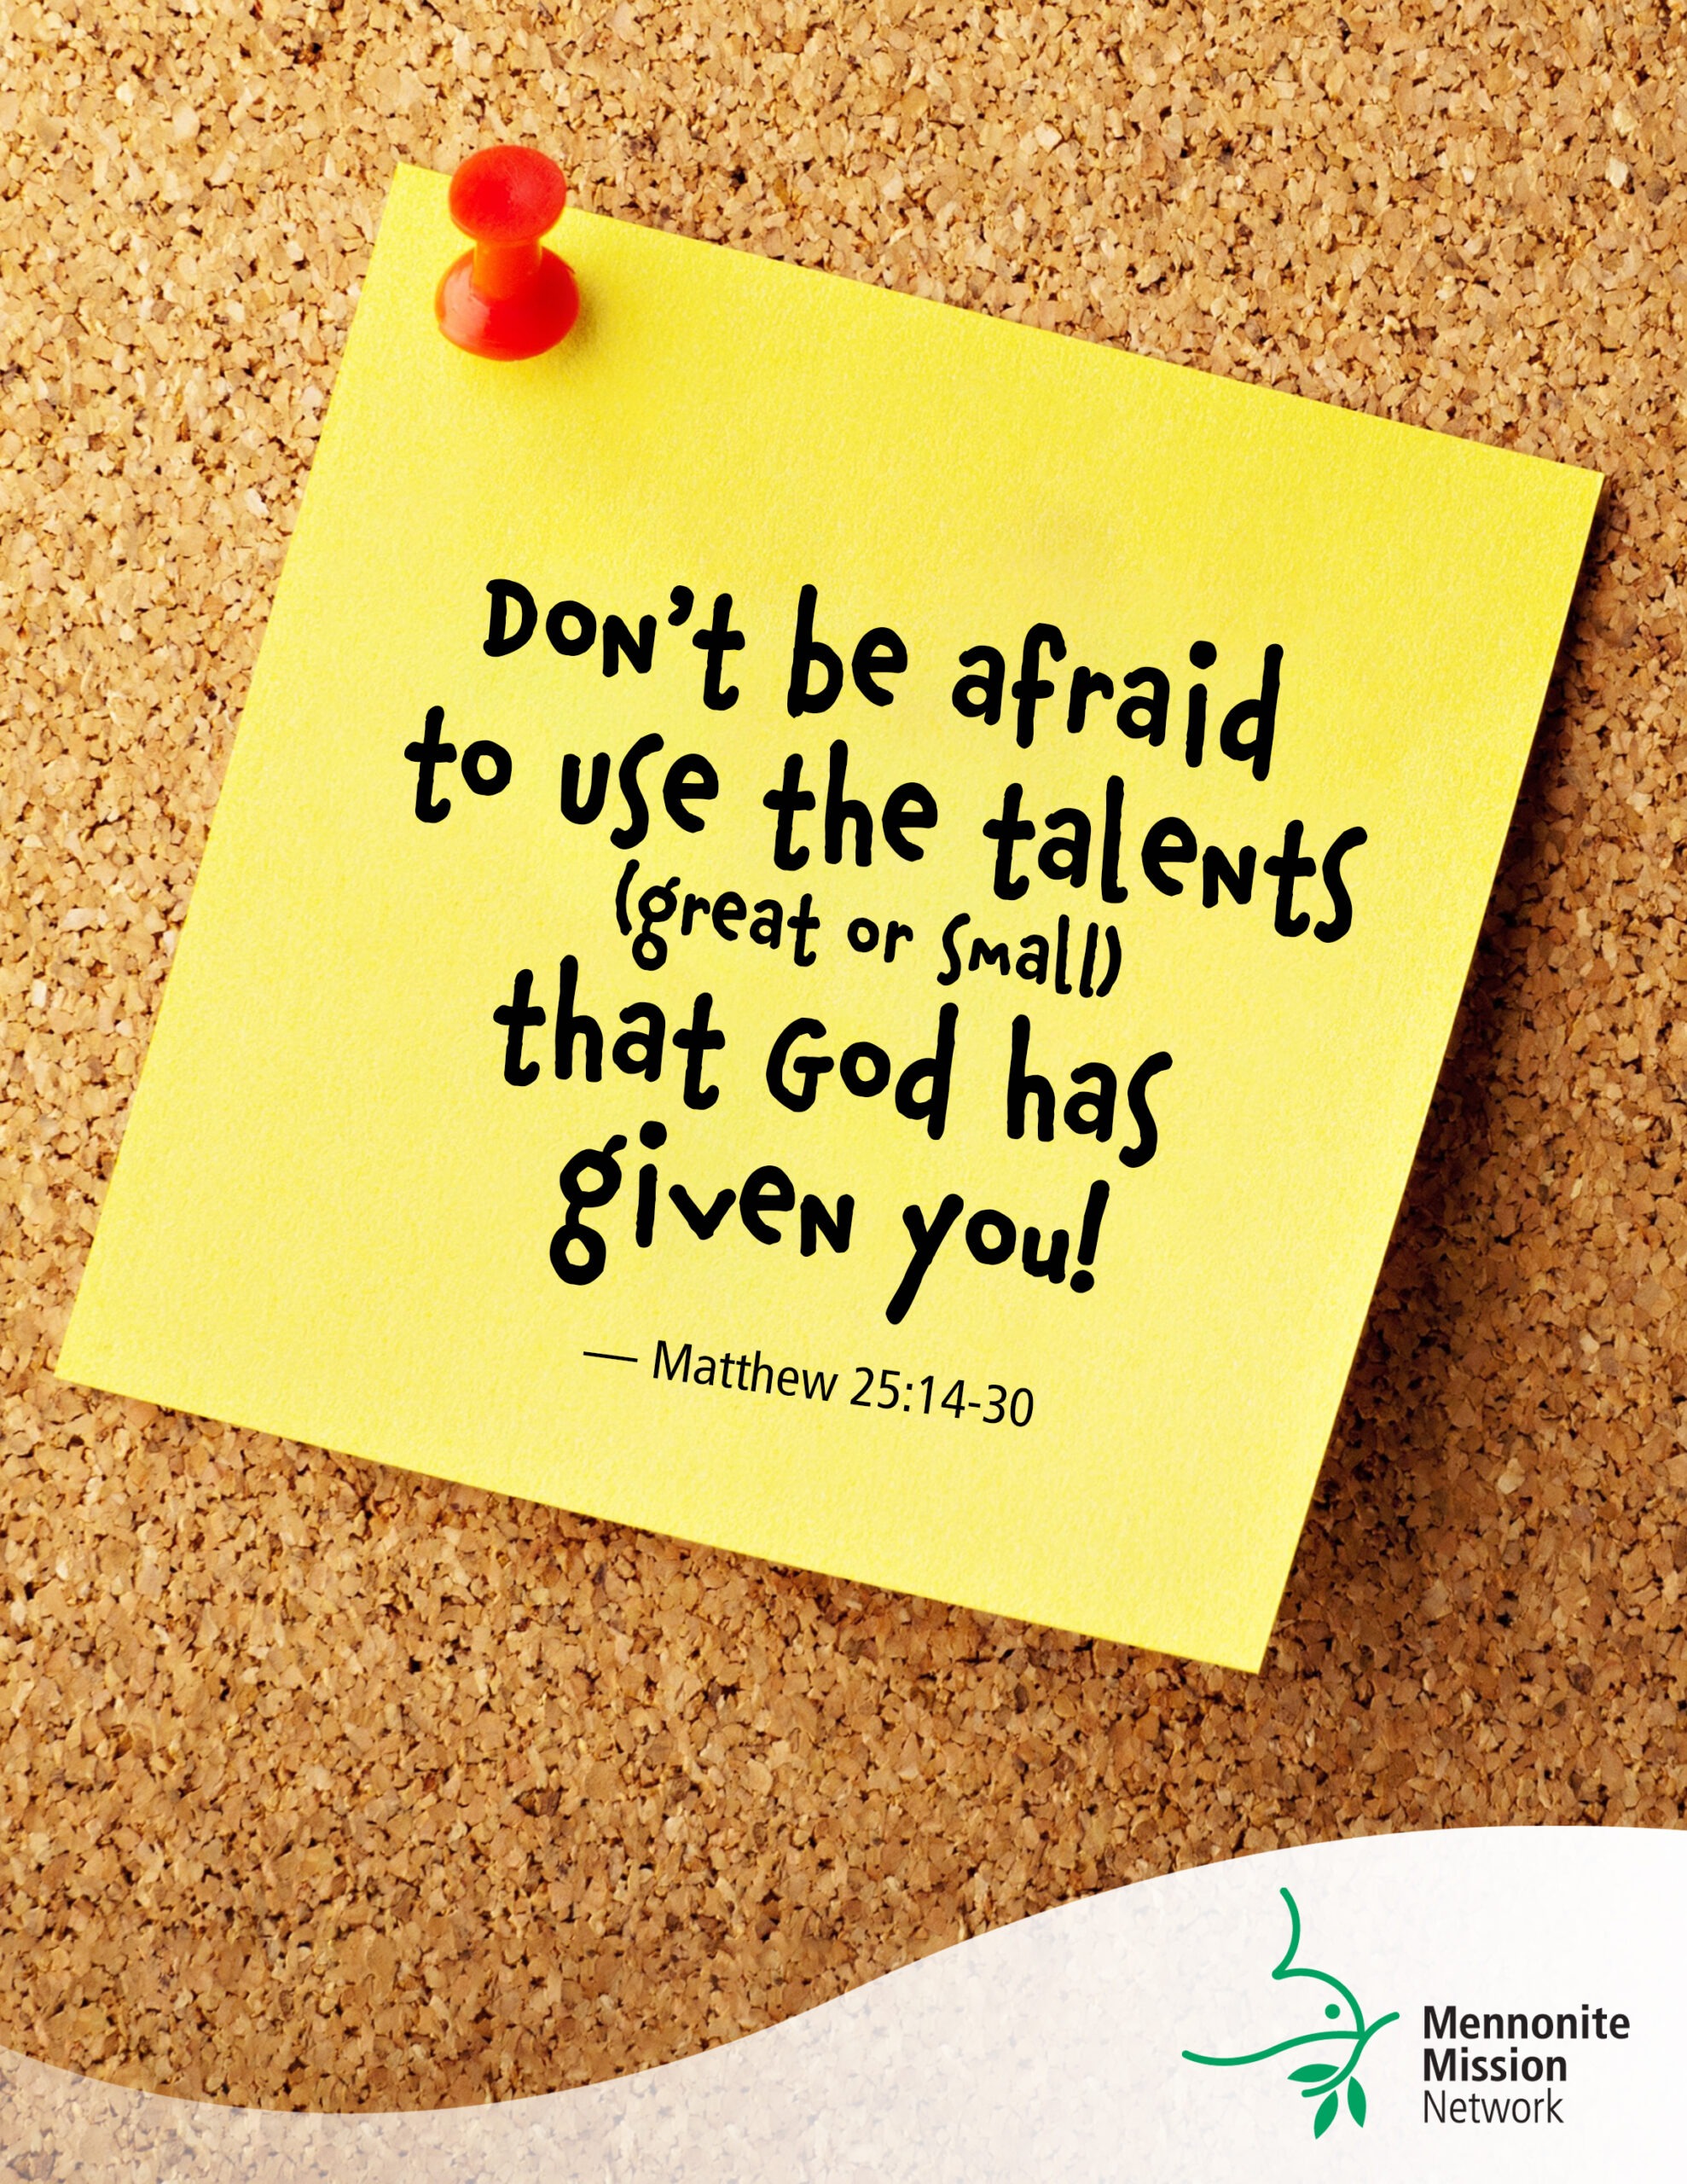 Don't be afraid
to use the talents
(great or small)
that God has
given you!
— Matthew 25:14-30
Mennonite
Mission
Network